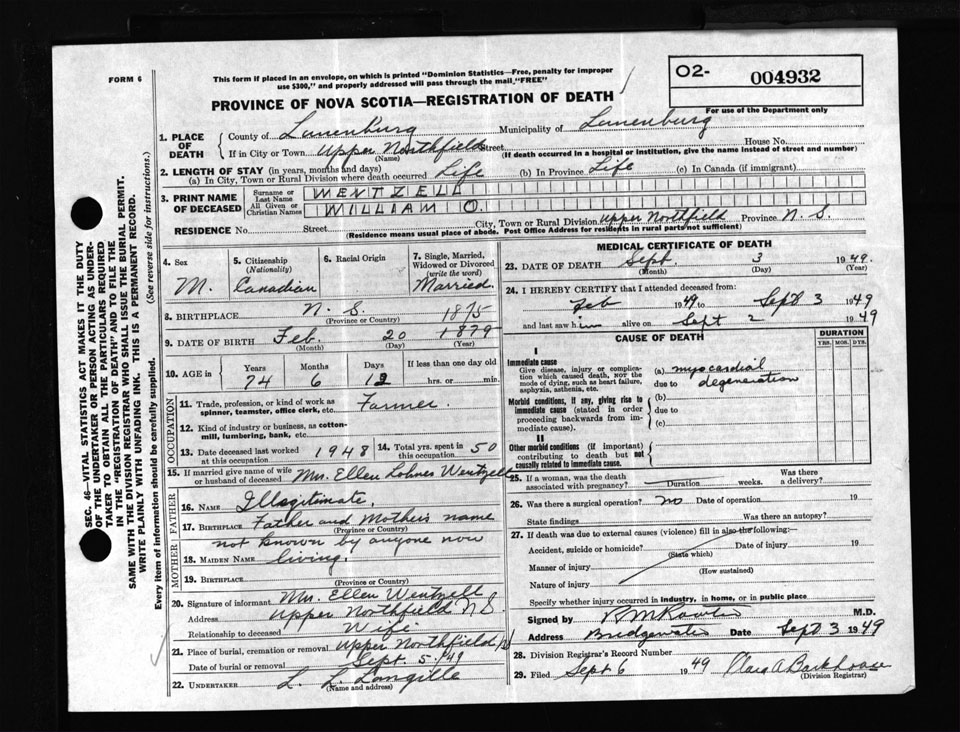 FORM 6
This form if placed in an envelope, on which is printed "Dominion Statistics—Free, penalty for improper
use $300," and properly addressed will pass through the mail, "FREE"
O2- 004932
For use of the Department only
PROVINCE OF NOVA SCOTIA—REGISTRATION OF DEATH
1. PLACE OF DEATH
County of Lunenburg Municipality of Lunenburg
If in City or Town Upper Northfield Street House No.
(Name) (If death occurred in a hospital or institution, give the name instead of street and number)
2. LENGTH OF STAY (in years, months and days)
(a) In City, Town or Rural Division where death occurred Life (b) In Province Life (c) In Canada (if immigrant)
3. PRINT NAME OF DECEASED
Surname or Last Name WENTZELL
All Given or Christian Names WILLIAM O.
RESIDENCE No. Street City, Town or Rural Division Upper Northfield Province N. S.
(Residence means usual place of abode. Post Office Address for residents in rural parts not sufficient)
4. Sex M.
5. Citizenship (Nationality) Canadian
6. Racial Origin
7. Single, Married, Widowed or Divorced (write the word) Married
8. BIRTHPLACE N. S. 1875
(Province or Country)
9. DATE OF BIRTH Feb. 20 1879
(Month) (Day) (Year)
10. AGE in Years Months Days If less than one day old
74 6 13 hrs. or min.
OCCUPATION
11. Trade, profession, or kind of work as spinner, teamster, office clerk, etc. Farmer
12. Kind of industry or business, as cotton-mill, lumbering, bank, etc
13. Date deceased last worked at this occupation 1948 14. Total yrs. spent in this occupation 50
15. If married give name of wife or husband of deceased Mrs. Ellen Lohnes Wentzell
FATHER
16. NAME Illegitimate,
17. BIRTHPLACE Father and Mother's name
(Province or Country)
not known by anyone now
MOTHER
18. MAIDEN NAME living.
19. BIRTHPLACE
(Province or Country)
20. Signature of informant Mrs. Ellen Wentzell
Address Upper Northfield N S
Relationship to deceased Wife
21. Place of burial, cremation or removal Upper Northfield
Date of burial or removal Sept. 5/49
22. UNDERTAKER L. L. Langille
(Name and address)
MEDICAL CERTIFICATE OF DEATH
23. DATE OF DEATH Sept. 3 1949.
(Month) (Day) (Year)
24. I HEREBY CERTIFY that I attended deceased from:
Feb 1949 to Sept 3 1949
and last saw him alive on Sept 2 1949
CAUSE OF DEATH
DURATION
YRS. MOS. DYS.
I
Immediate cause
Give disease, injury or complication which caused death, not the mode of dying, such as heart failure, asphyxia, asthenia, etc.
(a) myocardial
due to degeneration
Morbid conditions, if any, giving rise to immediate cause (stated in order proceeding backwards from immediate cause).
(b)
due to
(c)
II
Other morbid conditions (if important) contributing to death but not causally related to immediate cause.
25. If a woman, was the death associated with pregnancy? Duration weeks. Was there a delivery?
26. Was there a surgical operation? no Date of operation 19
State findings Was there an autopsy?
27. If death was due to external causes (violence) fill in also the following:—
Accident, suicide or homicide? Date of injury 19
(State which)
Manner of injury
(How sustained)
Nature of injury
Specify whether injury occurred in industry, in home, or in public place
Signed by M.D.
Address Bridgewater Date Sept 3 1949
28. Division Registrar's Record Number
29. Filed Sept 6 1949 Clara A Barkhouse
(Division Registrar)
SEC. 46—VITAL STATISTICS ACT MAKES IT THE DUTY
OF THE UNDERTAKER OR PERSON ACTING AS UNDER-
TAKER TO OBTAIN ALL THE PARTICULARS REQUIRED
IN THE "REGISTRATION OF DEATH" AND TO FILE THE
SAME WITH THE DIVISION REGISTRAR WHO SHALL ISSUE THE BURIAL PERMIT.
WRITE PLAINLY WITH UNFADING INK. THIS IS A PERMANENT RECORD.
Every item of information should be carefully supplied. (See reverse side for instructions.)